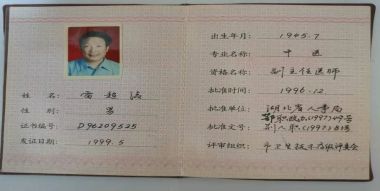 姓 名 雷超濤
性 别 男
证书编号: D96209525
发证日期: 1999.5
出生年月: 1945.7
专业名称: 中医
资格名称: 副主任医师
批准时间: 1996.12
批准单位: 湖北省人事局
鄂职改办(1997)49号
批准文号:
评审组织: